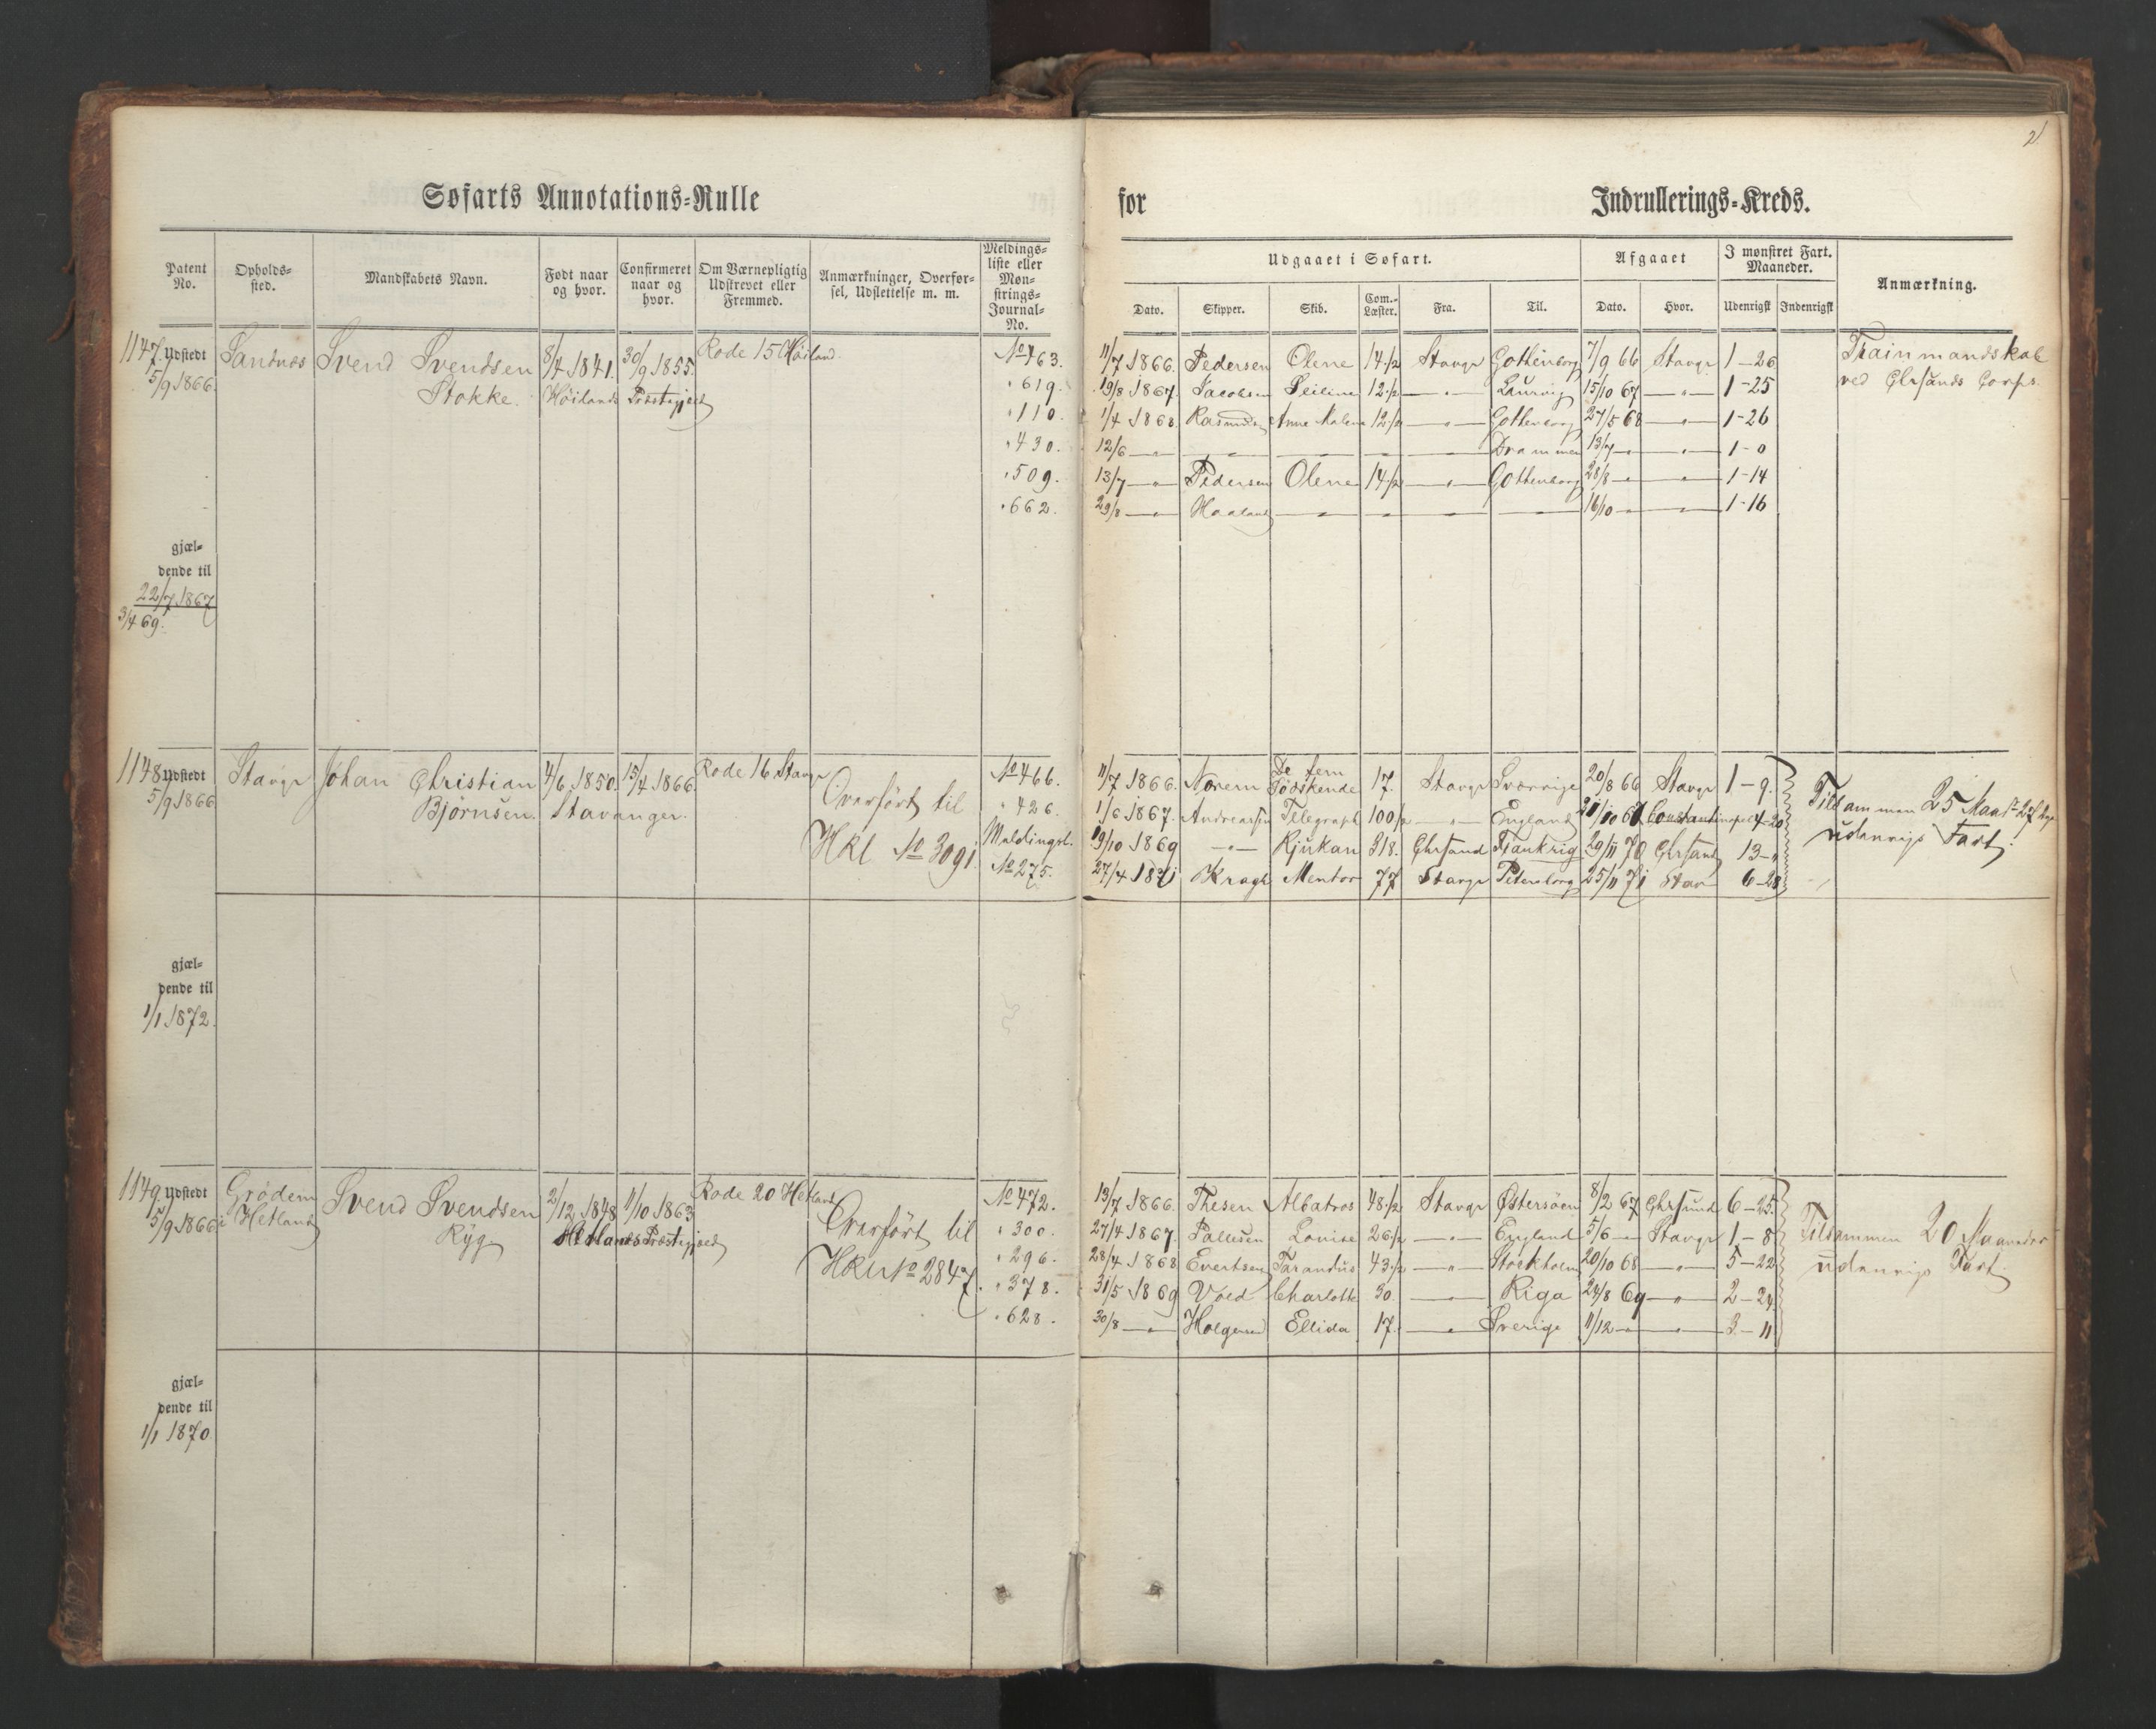 2
Søfarts Annotations-Rulle
for
Indrullerings-Kreds.
Patent No.
Opholds-sted.
Mandskabets Navn.
Født naar og hvor.
Confirmeret naar og hvor.
Om Værnepligtig Udskrevet eller Fremmed.
Anmærkninger, Overfør-sel, Udslettelse m. m.
Meldings-liste eller Møn-strings-Journal-No.
Udgaaet i Søfart.
Afgaaet
I mønstret Fart. Maaneder.
Anmærkning.
Dato.
Skipper.
Skib.
Com.-Læster.
Fra.
Til.
Dato.
Hvor.
Udenrigsk
Indenrigsk
1147. Udstedt 5/9 1866.
Sandnæs
Svend Svendsen
Stokke.
8/4 1841.
Høilands
30/9 1855.
Præstegjeld
Rode 15 Høiland.
No 463.
" 619.
" 110.
" 430.
" 509.
" 662.
11/7 1866. Pedersen Olene 14 1/2 Stavgr Gothenborg 7/9 66 Stavgr 1-26
19/8 1867. Jacobsen 12 1/2 —"— Laurvig 15/10 67 —"— 1-25
1/4 1868. Anne Malene 12 1/2 —"— Gothenborg 27/5 68 —"— 1-26
12/6 —"— —"— —"— —"— —"— Drammen 13/7 —"— —"— 1-0
13/7 —"— Pedersen Olene 14 1/2 —"— Gottenborg 28/8 —"— —"— 1-14
29/8 —"— Haaland —"— —"— —"— —"— 16/10 —"— —"— 1-16
Trainmandskab
ved Chrsands Corps.
gjæl-
dende til
22/7 1867
3/4 69.
1148 Udstedt 5/9 1866
Stavgr
Johan Christian
Bjørnsen.
4/6 1850.
Stavanger.
15/4 1866.
Rode 16 Stavgr
Overført til
Hkl No 3091
No 466.
" 426.
Meldingsl.
No 275.
11/7 1866. Norem De fem Södskende 17. Stavgr Sverrige 20/8 66 Stavgr 1-9.
1/6 1867. Andreassen Telegraph 100 1/2 —"— England Constantinopel 4-20
19/10 1869 —"— Rjukan 318. Chrsand Frankrig 29/11 70 Chrsand 13-"
27/4 1871 Kragh Mentor 77 Stavgr Petersborg 25/11 71 Stav 6-28
Tilsammen 25 Maand 27 Dge
udenrigs Fart.
gjæl-
dende til
1/1 1872.
1149. Udstedt 5/9 1866
Grödem
i Hetland
Svend Svendsen
Ryg
2/12 1848
11/10 1863
Hetlands Præstegjeld
Rode 20 Hetland
Overført til
HKl No 2847.
No 472.
" 300.
" 296.
" 378.
" 628.
13/7 1866. Thesen Albatros 48 1/2 Stavgr Østersöen 8/2 67 Chrsund 6-25.
27/4 1867. Pallesen Louise 26 1/2 —"— England 5/6 —"— Stavgr 1-8
28/4 1868 Evertsen Tarandus 43 1/2 —"— Stockholm 20/10 68 —"— 5-22
31/5 1869 Voed Charlotte 30. —"— Riga 24/8 69 —"— 2-24
30/8 —"— Holgersen Ellida 17. —"— Sverige 11/12 —"— —"— 3-11
Tilsammen 20 Maaneder
udenrigs Fart.
gjæl-
dende til
1/1 1870.